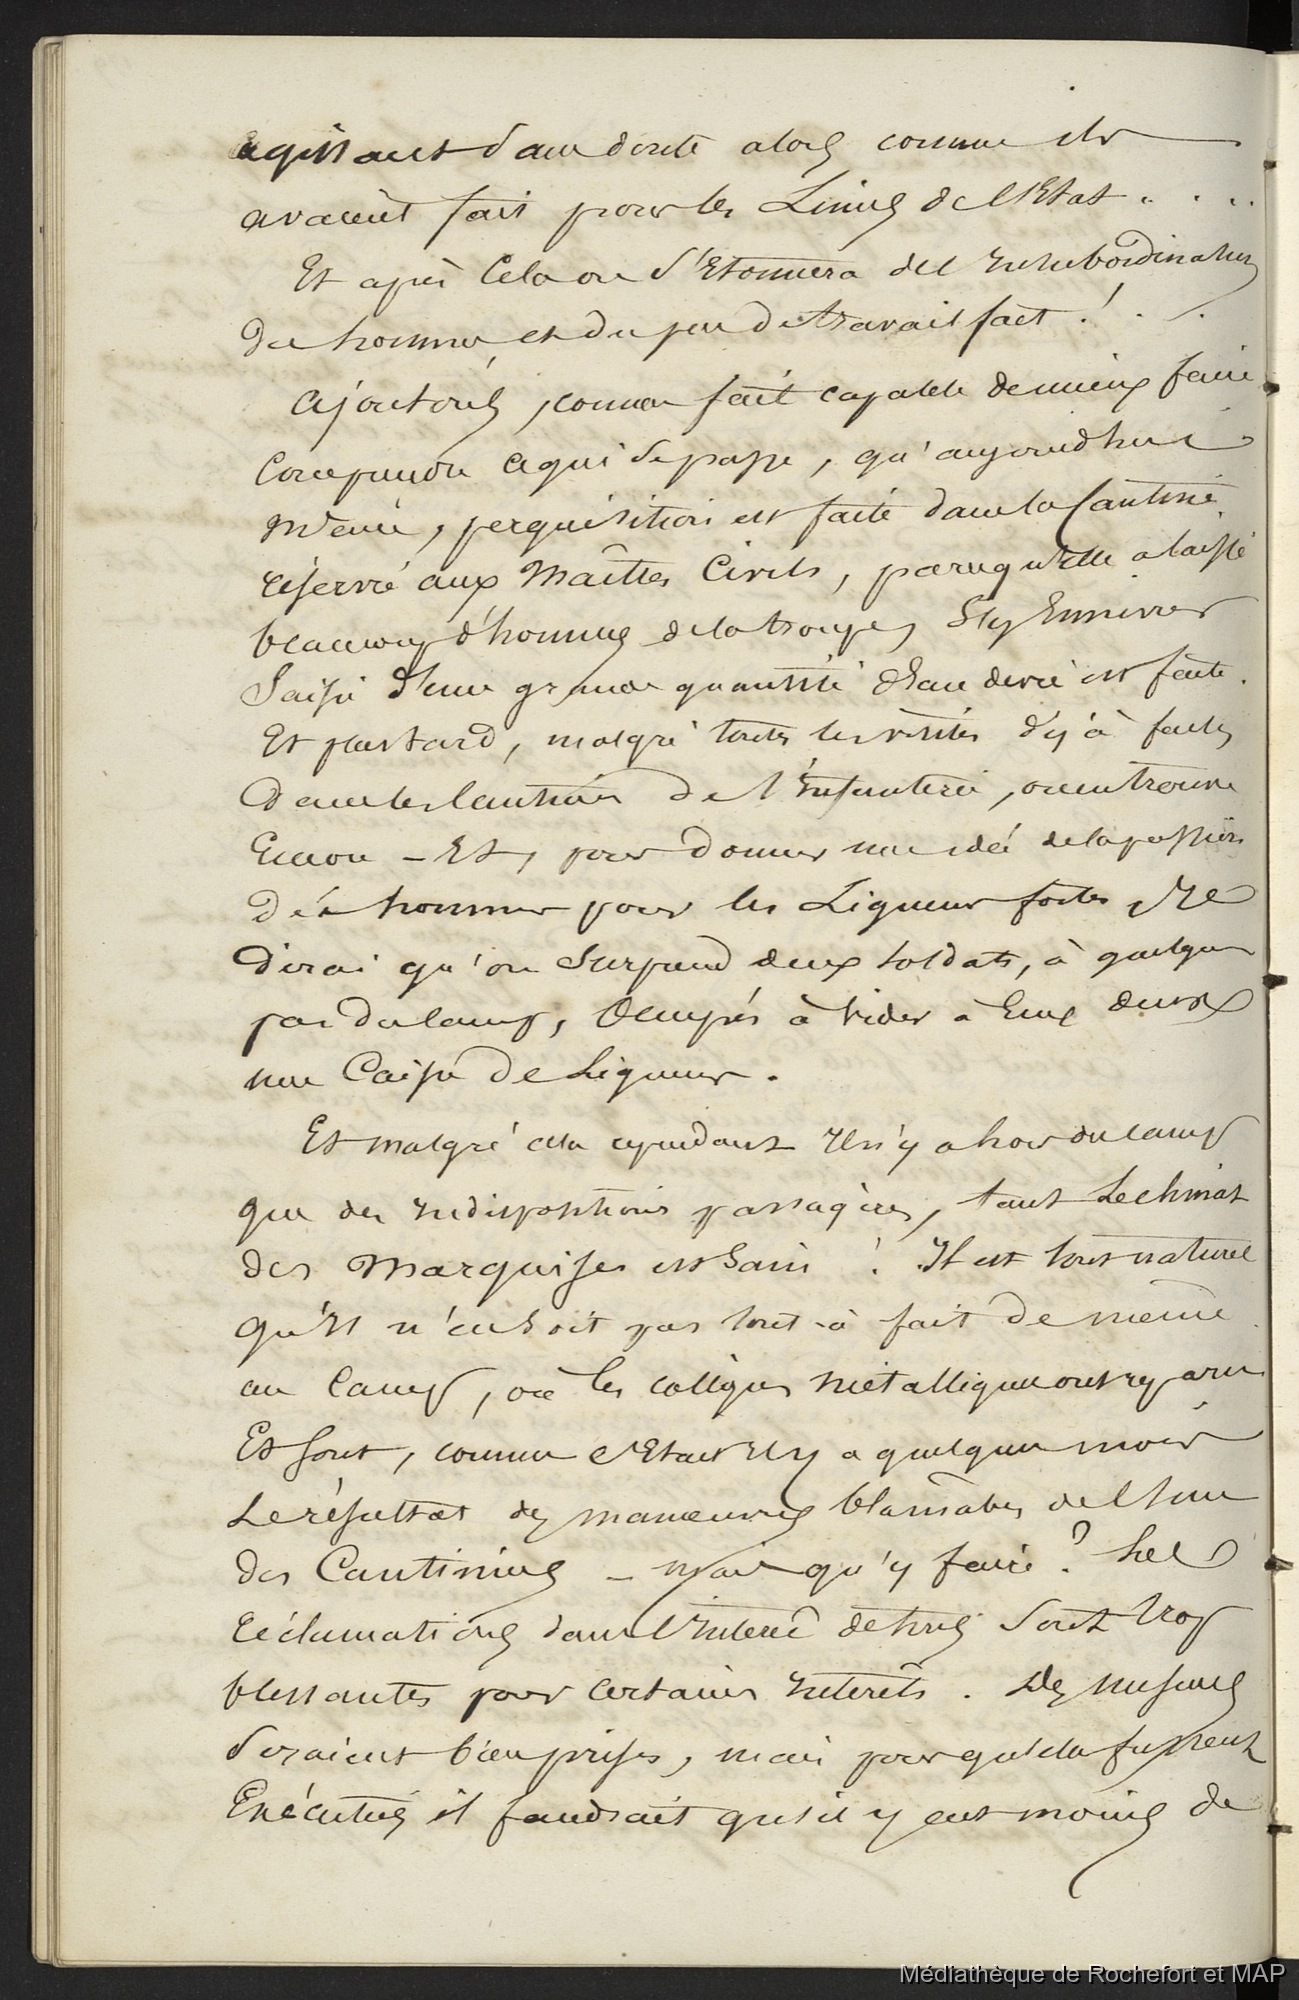 agissant sans doute alors comme ils
avaient fait pour les Limes de l'Etat . . . .
Et après Cela on s'Etonnera de l'Insubordination
des hommes et du peu de travail fait ! . .
Ajoutons, comme fait capable de mieux faire
Comprendre ce qui se passe, qu'aujourd'hui
même, perquisition est faite dans la Cantine
réservé aux Maîtres Civils, parce qu'elle a laissé
beaucoup d'hommes de la troupe s'y Ennivrer
Saisie d'une grande quantité d'Eau de vie est faite.
Et plus tard, malgré toutes les visites déjà faites
dans les Cantines de l'Infanterie, on en trouve
Encore – Et, pour donner une idée de la passion
des hommes pour les Liqueurs fortes, Je
dirai qu'on Surprend deux soldats, à quelques
pas du Camp, Occupés à vider à Eux deux
une Caisse de Liqueurs.
Et malgré cela cependant Il n'y a hors du Camp
que des Indispositions passagères, tant le climat
des Marquises est Sain ! Il est tout naturel
qu'Il n'en soit pas tout-à fait de même
au Camp, où les coliques métalliques ont reparu
Et Sont, comme c'Etait Il y a quelques mois
Le résultat des manoeuvres blamables de l'une
des Cantinieres – mais qu'y faire ? Les
réclamations dans l'Interêt de tous Sont trop
blessantes pour certains Interêts. Des mesures
Seraient bien prises, mais pour qu'elles fussent
Exécutées il faudrait qu'il y eut moins de
Médiathèque de Rochefort et MAP